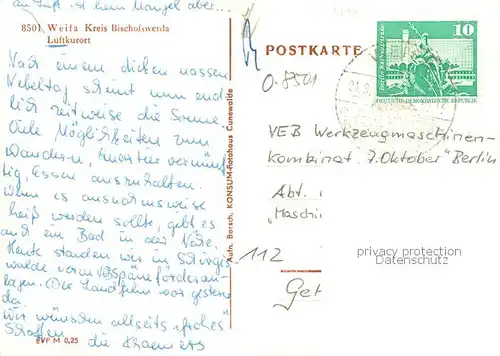 an Luft ist kein Mangel aber...
8501 Weifa Kreis Bischofswerda
Luftkurort
Nach einem dicken nassen
Nebeltag scheint nun end-
lich zeitweise die Sonne.
Viele Möglichkeiten zum
Wandern, Quartier vernünf-
tig, Essen auszuhalten.
Wenn es ausnahmsweise
heiß werden sollte, gibt es
auch ein Bad in der Nähe.
Heute standen wir in
walde vorm Späneförderan-
lagen. Der Landfilm war gestern
da.
Wir wünschen allseits frohes
Schaffen die
EVP M 0,25
Aufn. Borsch, KONSUM-Fotohaus Cunewalde
POSTKARTE
10
DEUTSCHE DEMOKRATISCHE REPUBLIK
O-8501
VEB Werkzeugmaschinen-
kombinat "7. Oktober" Berlin
Abt.
"Maschi
112
privacy protection
Datenschutz
Get